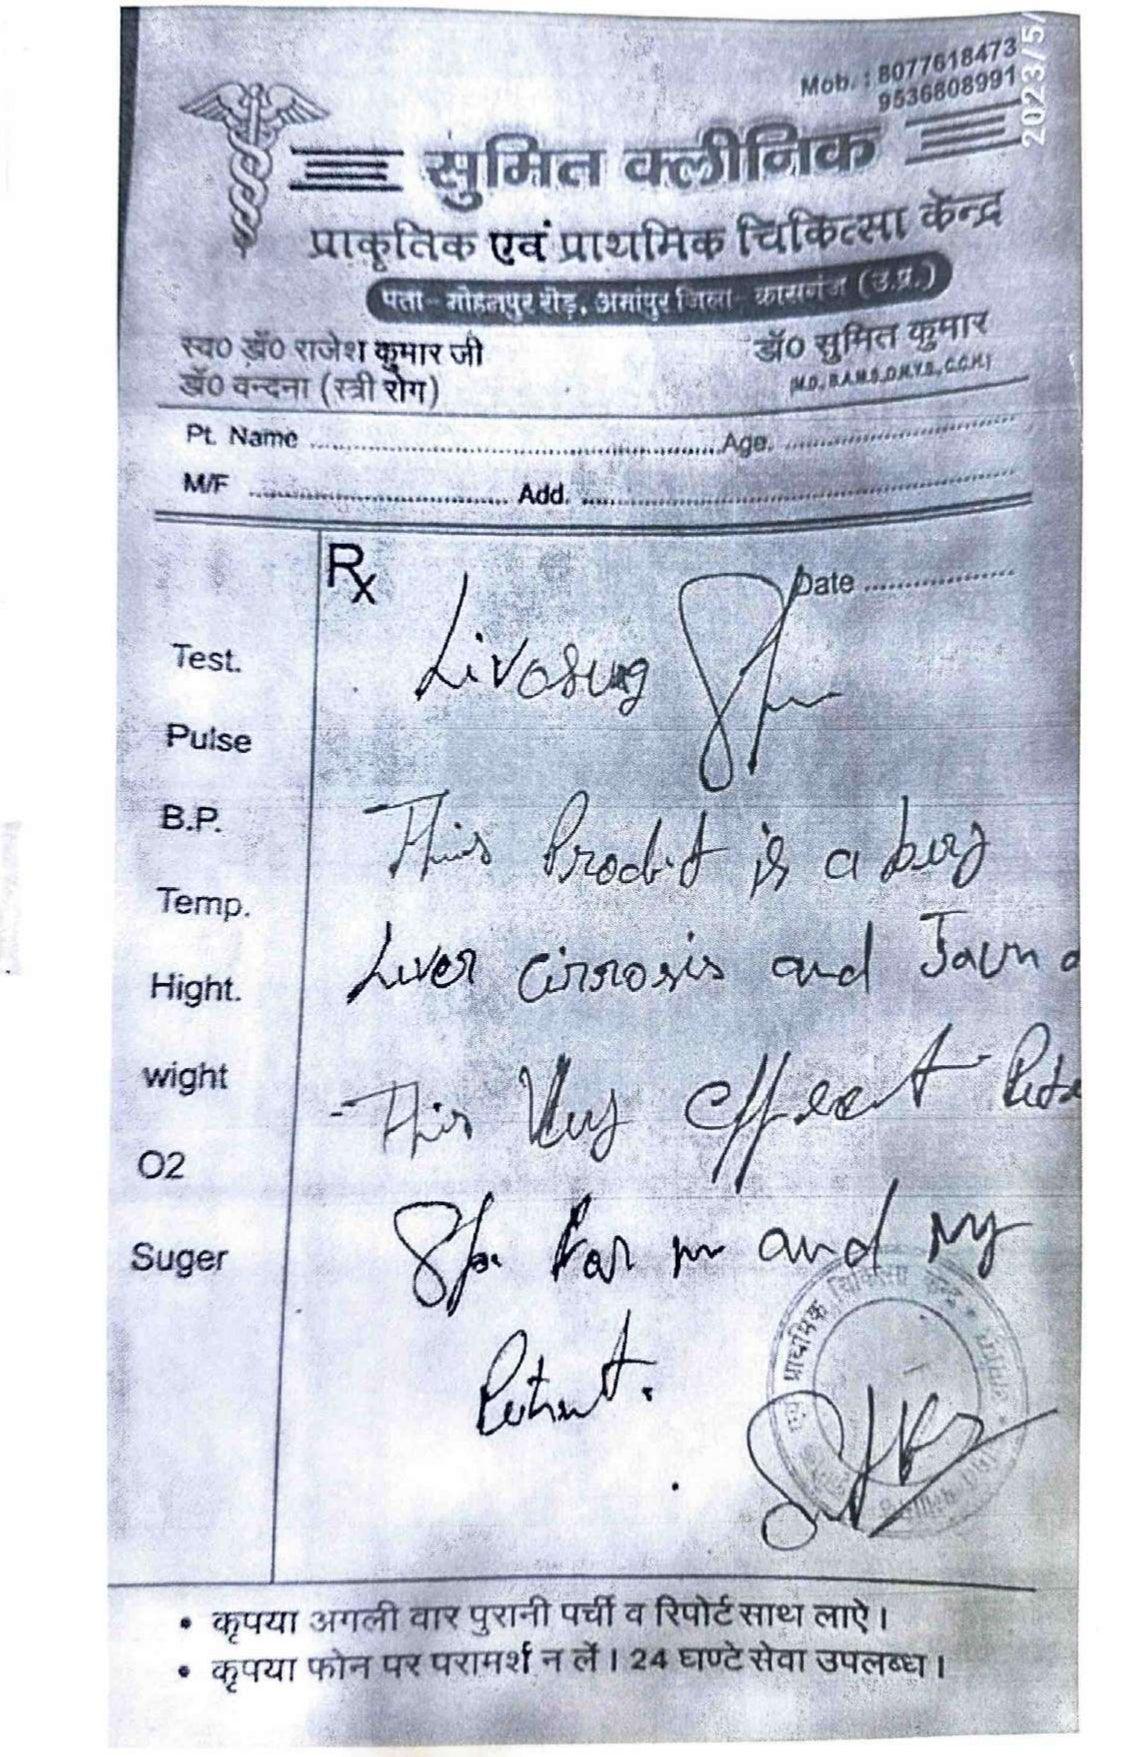 Mob. : 8077618473
9536808991
2023/5/
सुमित क्लीनिक
प्राकृतिक एवं प्राथमिक चिकित्सा केन्द्र
पता- मोहनपुर रोड़, अमांपुर जिला- कासगंज (उ.प्र.)
स्व0 डॉ0 राजेश कुमार जी
डॉ0 वन्दना (स्त्री रोग)
डॉ0 सुमित कुमार
(M.D., B.A.M.S., D.N.Y.S., C.C.H.)
Pt. Name Age.
M/F Add.
Rx
Date
Test.
Pulse
B.P.
Temp.
Hight.
wight
O2
Suger
Livosug
This is a
Liver cirrosis and Jaun
This Very effeect
for and My
कृपया अगली वार पुरानी पर्ची व रिपोर्ट साथ लाऐ।
कृपया फोन पर परामर्श न लें। 24 घण्टे सेवा उपलब्ध।